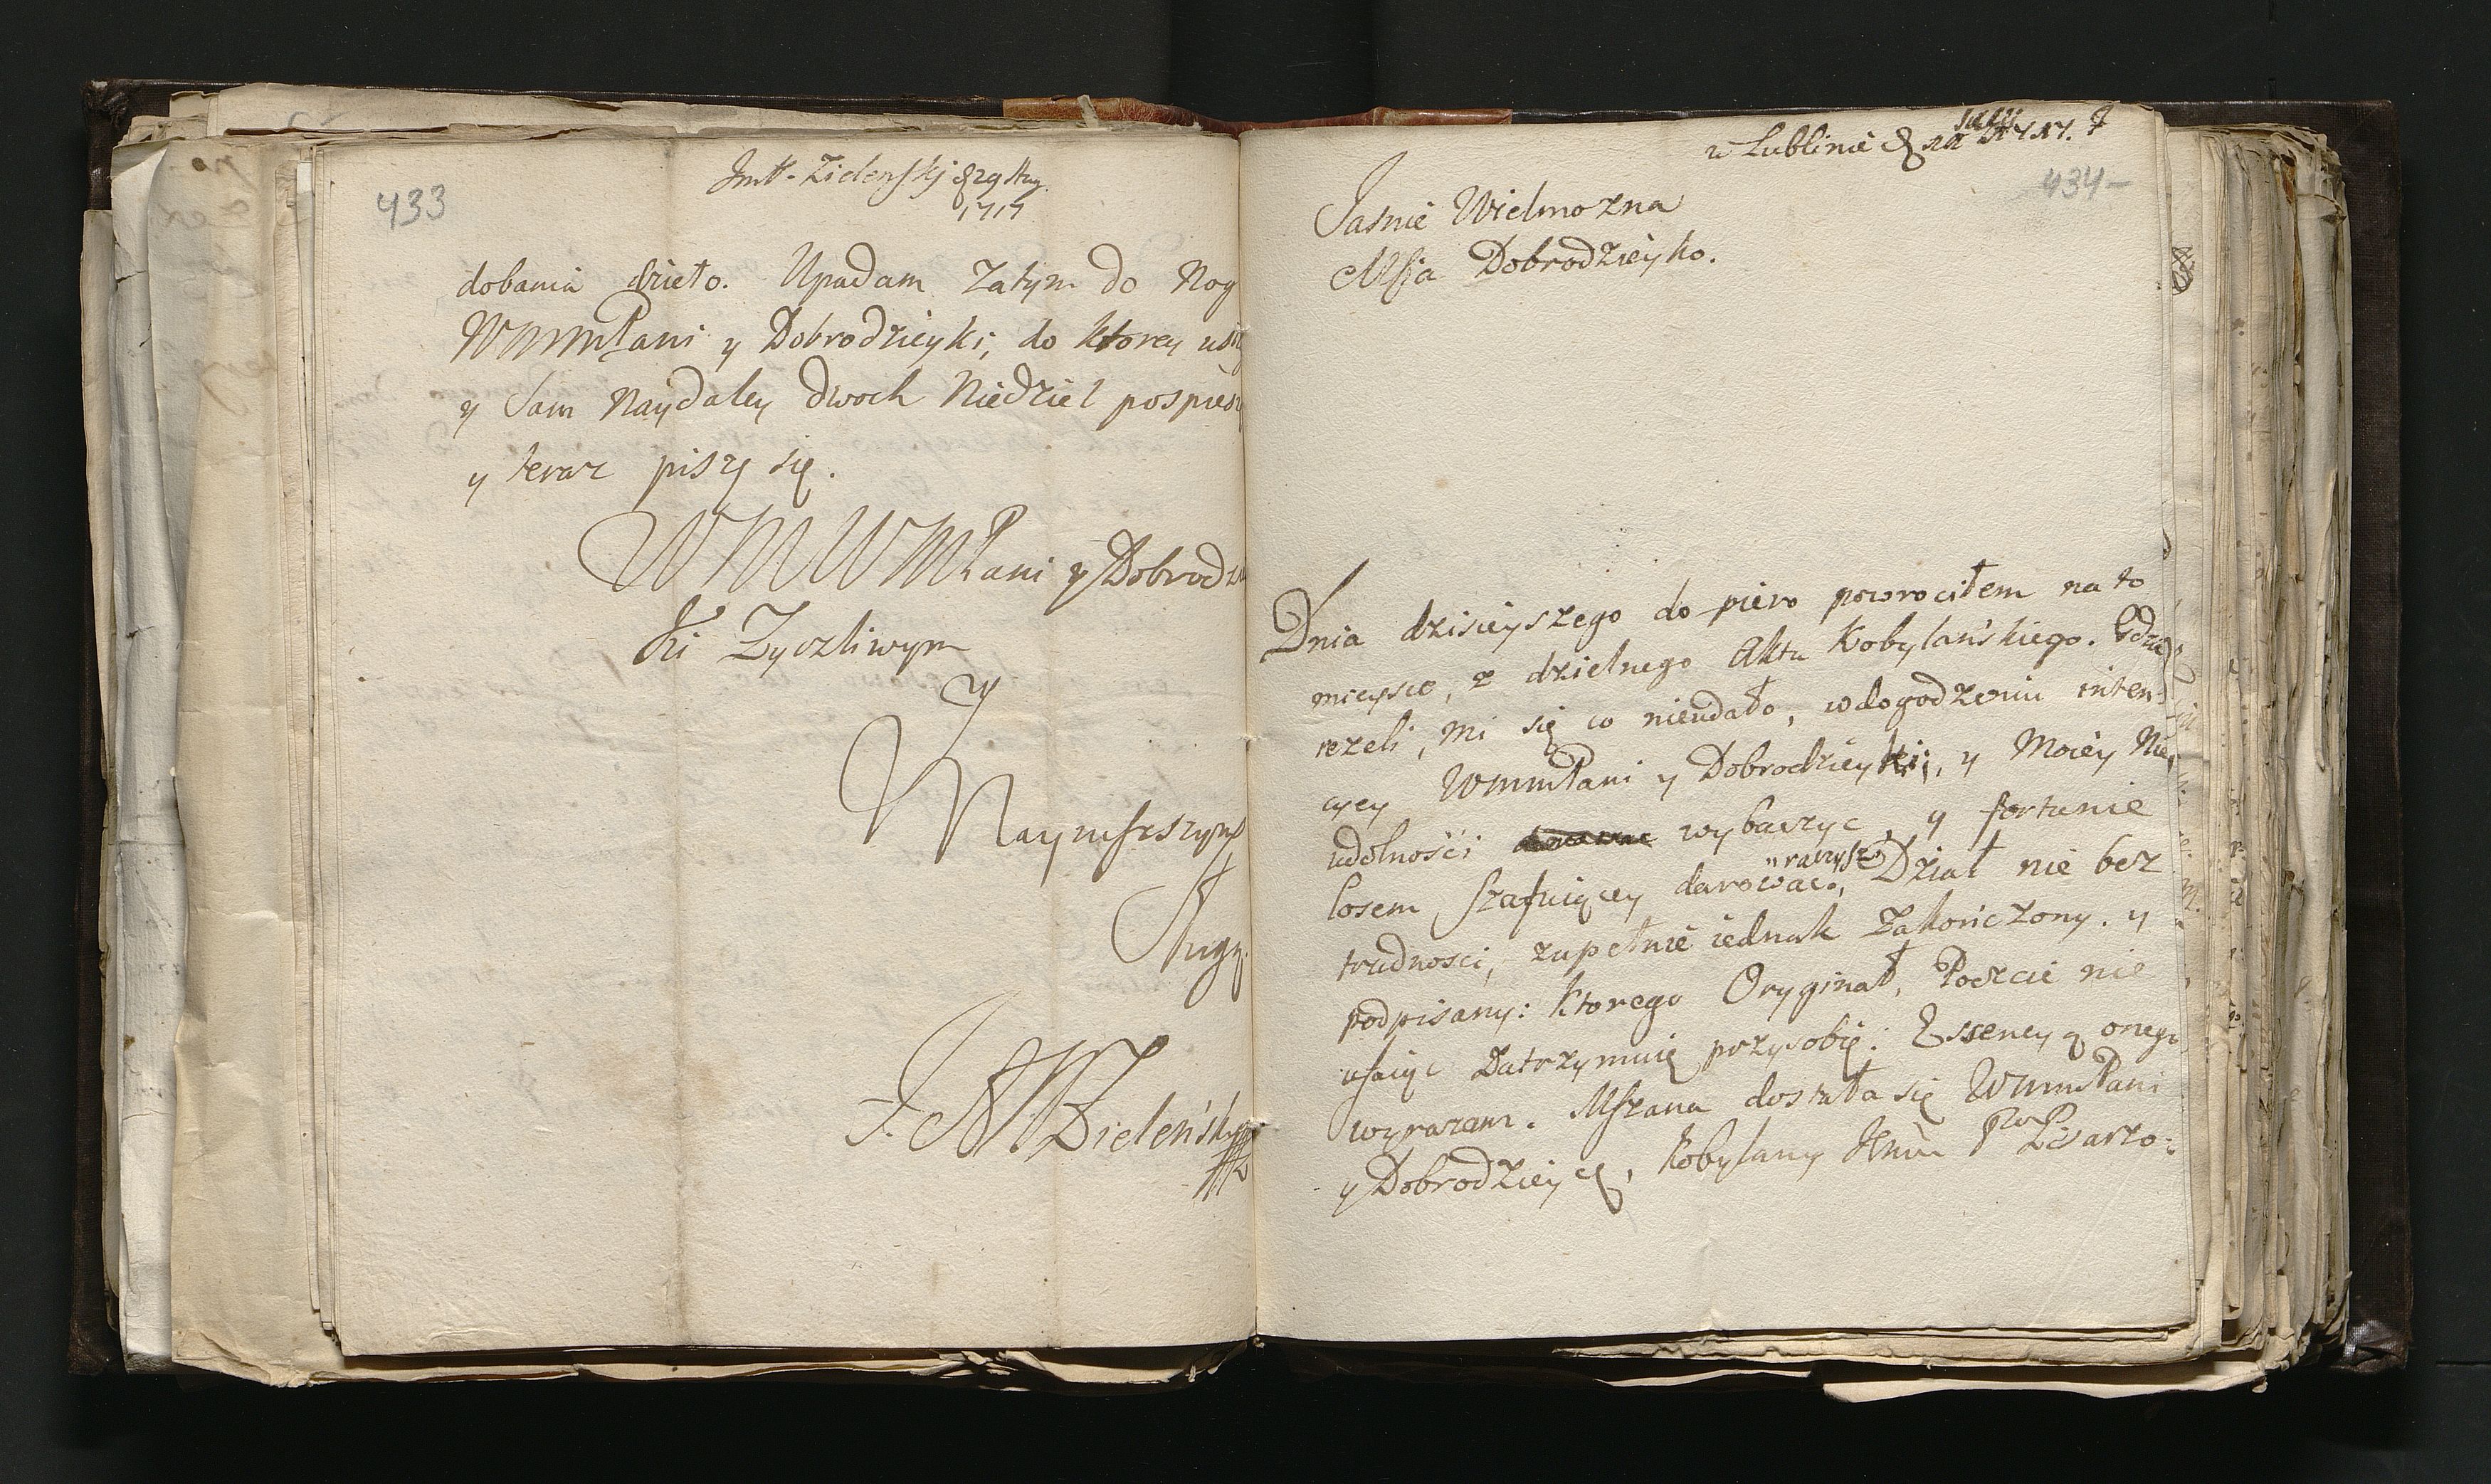 433
Zielenskj 29
1717
dobania dzieło. Upadam Zatym do Nog
WMMPani y Dobrodzieyki, do ktorey
y Sam Naydaley dwoch Niedziel
y teraz piszę się.
WMWMPani y
ki Zyczliwym
Y
Nayniższym
Sługą
Zieleński
w Lublinie
434
Jasnie Wielmozna
Mśia Dobrodzieyko.
Dnia dzisieyszego do piero powrociłem na to
mieysce, z dzielnego Aktu Kobylańskiego. Gdzie
iezeli, mi się co nieudało, w dogodzeniu inten-
cyey WMMPani y Dobrodzieyki, y Moiey Nie
udolności wybaczyc, y fortunie
losem szafuiącey darować raczysz, Dział nie bez
trudnosci, zupełnie iednak Zakończony. y
podpisany: ktorego Oryginał, Poczcie nie
ufaiąc Zatrzymuię przysobię: Essencyą onego
wyrazam. Mszana dostała się WMMPani
y Dobrodzieycę, Kobylany